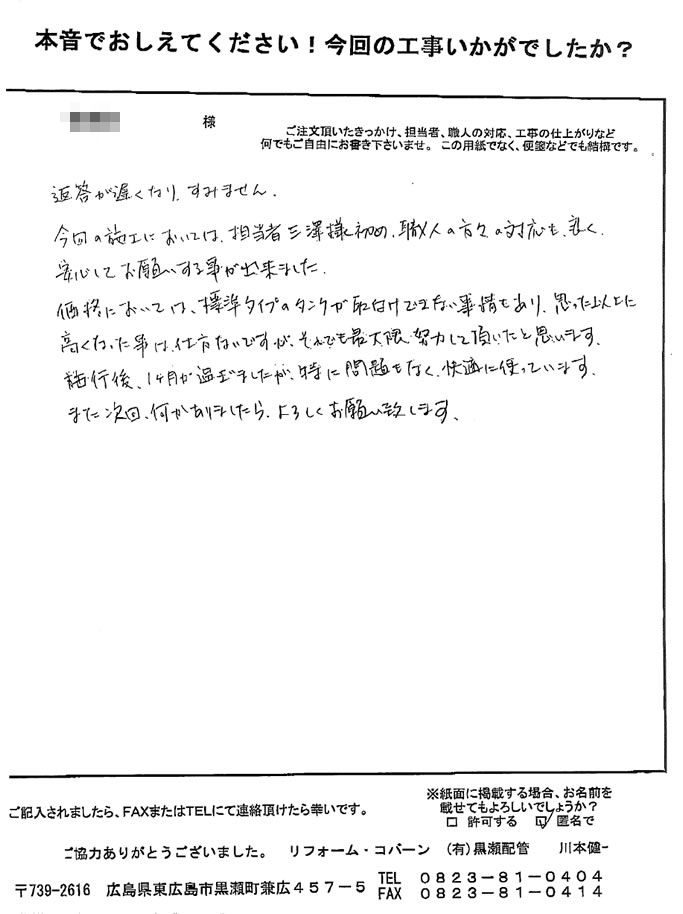 本音でおしえてください！今回の工事いかがでしたか？
様
ご注文頂いたきっかけ、担当者、職人の対応、工事の仕上がりなど
何でもご自由にお書き下さいませ。この用紙でなく、便箋などでも結構です。
返答が遅くなり、すみません。
今回の施工においては、担当者三澤様初め、職人の方々の対応も、良く、
安心してお願いする事が出来ました。
価格においては、標準タイプのタンクが取付けできない事情もあり、思った以上に
高くなった事は、仕方ないですが、それでも最大限、努力して頂いたと思います。
施行後、1ヶ月が過ぎましたが、特に問題もなく、快適に使っています。
また次回、何かありましたら、よろしくお願い致します。
ご記入されましたら、FAXまたはTELにて連絡頂けたら幸いです。
※紙面に掲載する場合、お名前を
載せてもよろしいでしょうか？
□ 許可する ☑ 匿名で
ご協力ありがとうございました。 リフォーム・コバーン （有）黒瀬配管 川本健一
〒739-2616 広島県東広島市黒瀬町兼広４５７－５
TEL ０８２３－８１－０４０４
FAX ０８２３－８１－０４１４